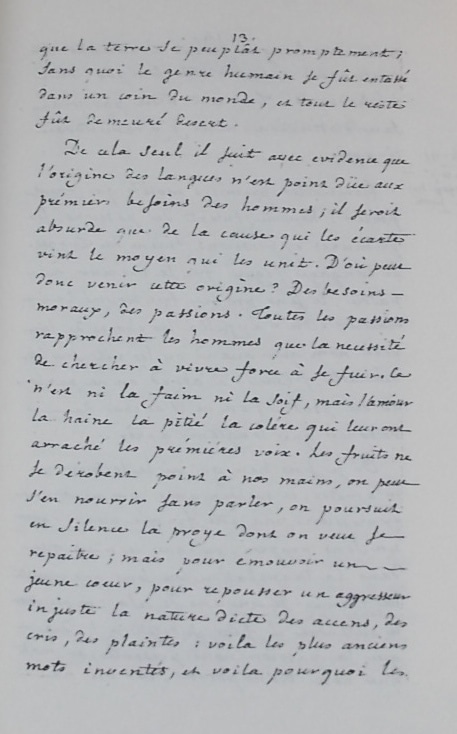 13.
que la terre se peuplât promptement;
sans quoi le genre humain se fût entassé
dans un coin du monde, et tout le reste
fût demeuré desert.
De cela seul il suit avec evidence que
l'origine des langues n'est point düe aux
prémiers besoins des hommes; il seroit
absurde que de la cause qui les écarte
vint le moyen qui les unit. D'où peut
donc venir cette origine? Des besoins
moraux, des passions. Toutes les passions
rapprochent les hommes que la necessité
de chercher à vivre force à se fuir. Ce
n'est ni la faim ni la soif, mais l'amour
la haine la pitié la colére qui leur ont
arraché les prémiéres voix. Les fruits ne
se dérobent point à nos mains, on peut
s'en nourrir sans parler, on poursuit
en silence la proye dont on veut se
repaitre; mais pour émouvoir un
jeune coeur, pour repousser un aggresseur
injuste la nature dicte des accens, des
cris, des plaintes: voila les plus anciens
mots inventés, et voila pourquoi les